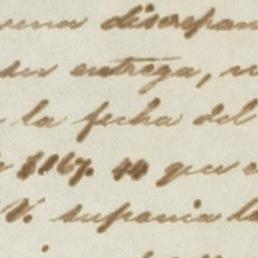 una discrepan
su entrega, n
la fecha del
$167.44 que
V. suponia la